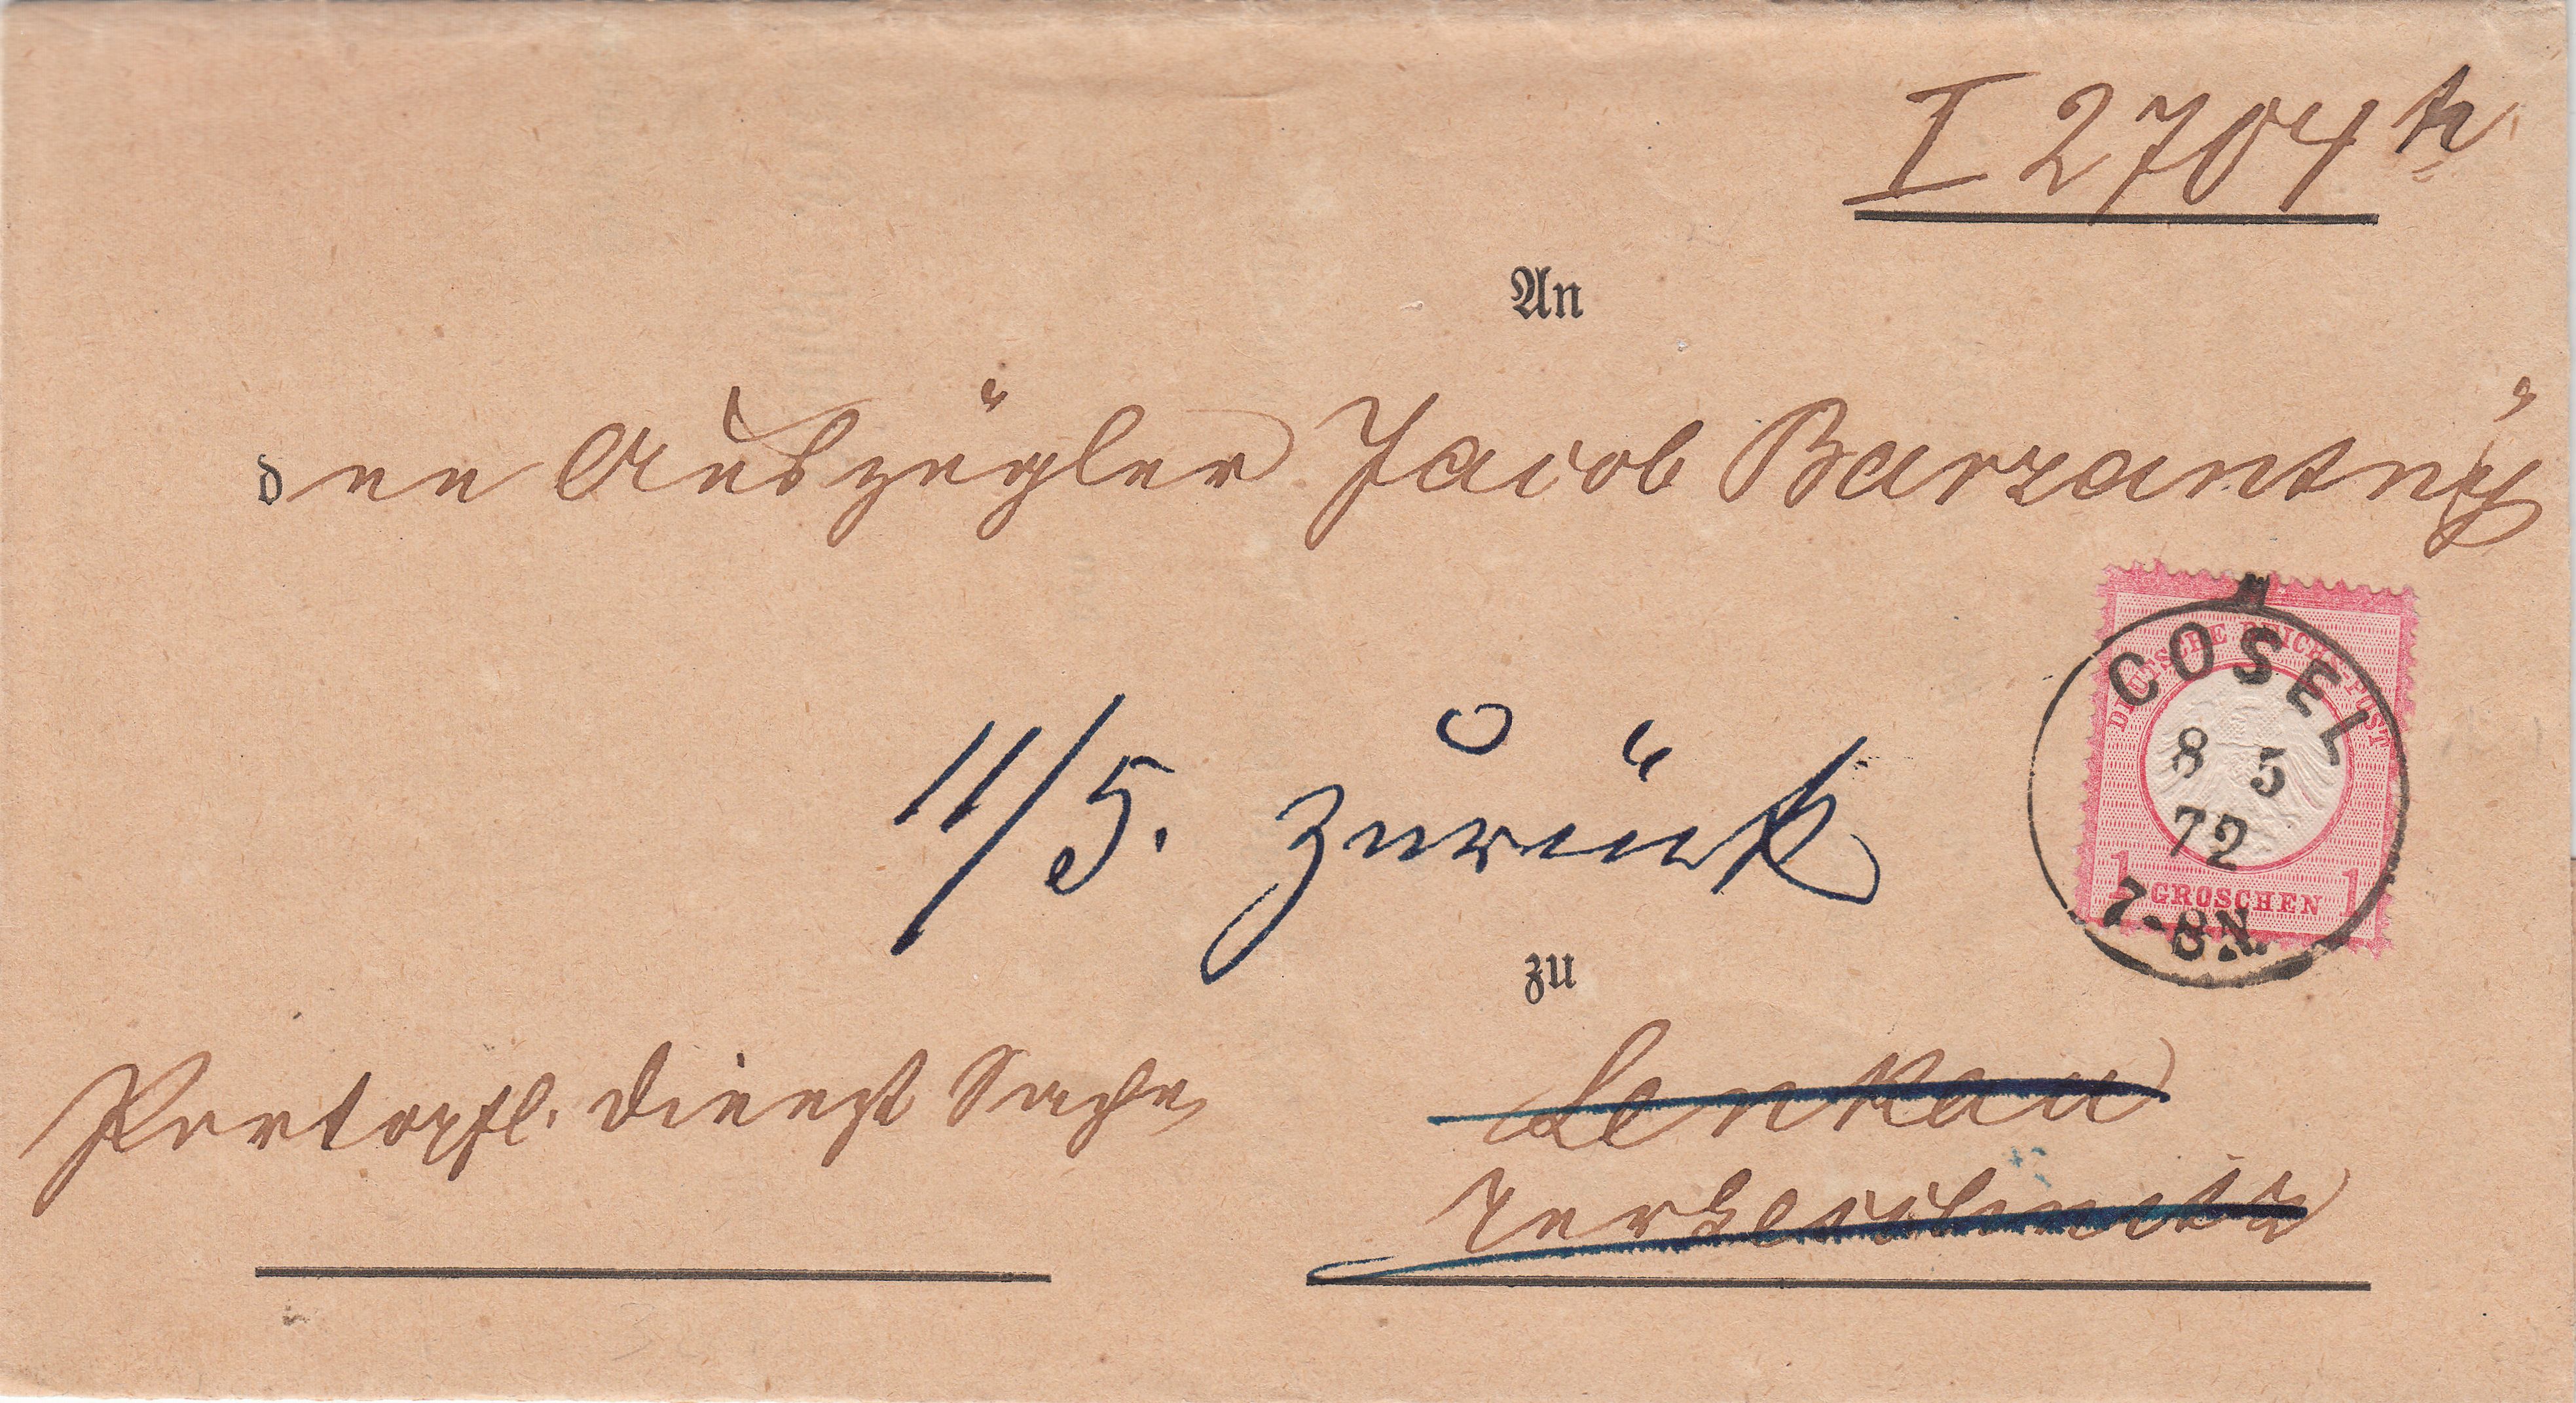 I 2704
An
den Auszügler Jacob Barzantny
COSEL
8 5
72
7-8N.
DEUTSCHE REICHS-POST
1 GROSCHEN 1
11/5. zurück
zu
Portopfl. Dienst Sache
Lenkau